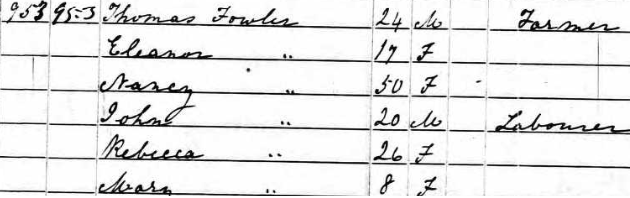 953 953 Thomas Fowler 24 M Farmer
Eleanor " 17 F
Nancy " 50 F
John " 20 M Labourer
Rebecca " 26 F
Mary " 8 F